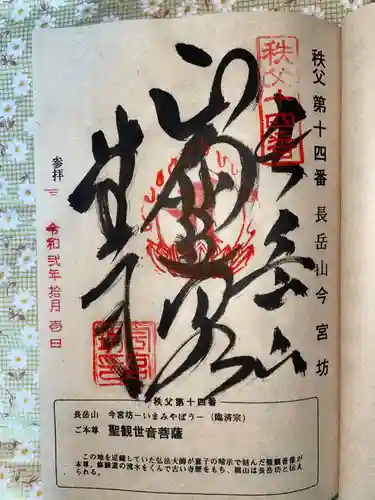 秩父第十四番 長岳山今宮坊
秩父十四番
長岳山
参拝
令和弐年拾月壱日
秩父第十四番
長岳山 今宮坊－いまみやぼう－（臨済宗）
ご本尊 聖観世音菩薩
この地を巡錫していた弘法大師が童子の暗示で刻んだ聖観音像が
本尊。修験道の流水をくんで古い寺歴をもち、開山は長岳坊と伝え
られる。